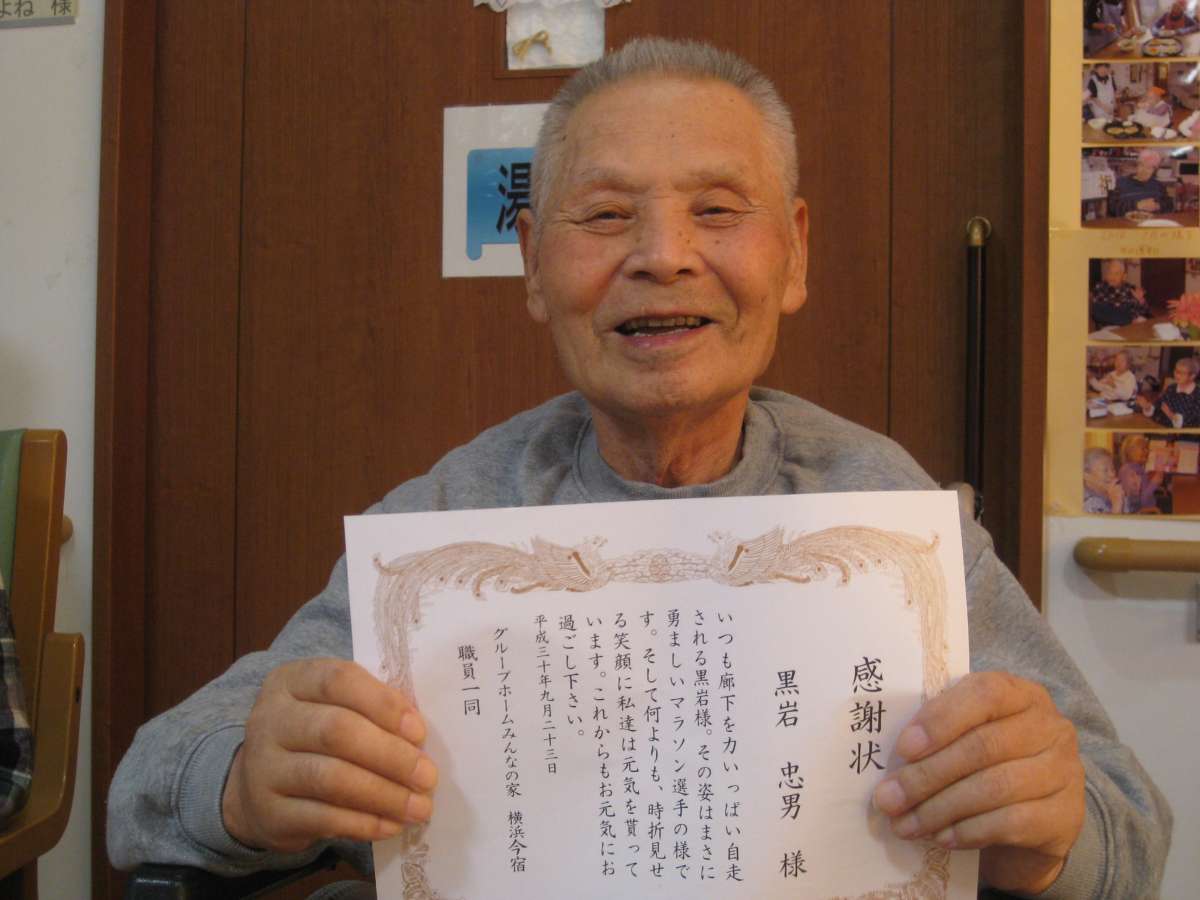 よね 様
湯
感謝状
黒岩 忠男 様
いつも廊下を力いっぱい自走
される黒岩様。その姿はまさに
勇ましいマラソン選手の様で
す。そして何よりも、時折見せ
る笑顔に私達は元気を貰って
います。これからもお元気にお
過ごし下さい。
平成三十年九月二十三日
グループホームみんなの家 横浜今宿
職員一同